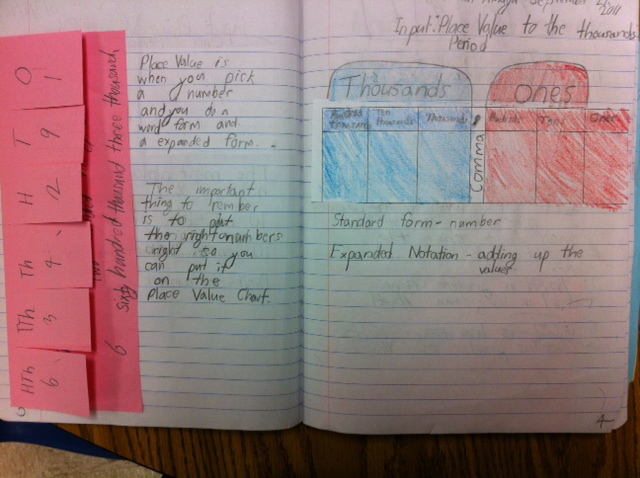 O
1
T
9
H
2
Th
4
TTh
3
HTh
6
sixty hundred thousand three thousand
6
Place Value is
when you pick
a number
and you do a
word form and
a expanded form.
The important
thing to rember
is to put
the right numbers
right so you
can put it
on the
Place Value Chart.
Input: Place Value to the thousands
Period
Thousands
Ones
Hundred thousands
Ten thousands
Thousands
Comma
Hundreds
Tens
Ones
Standard form - number
Expanded Notation - adding up the
values
4